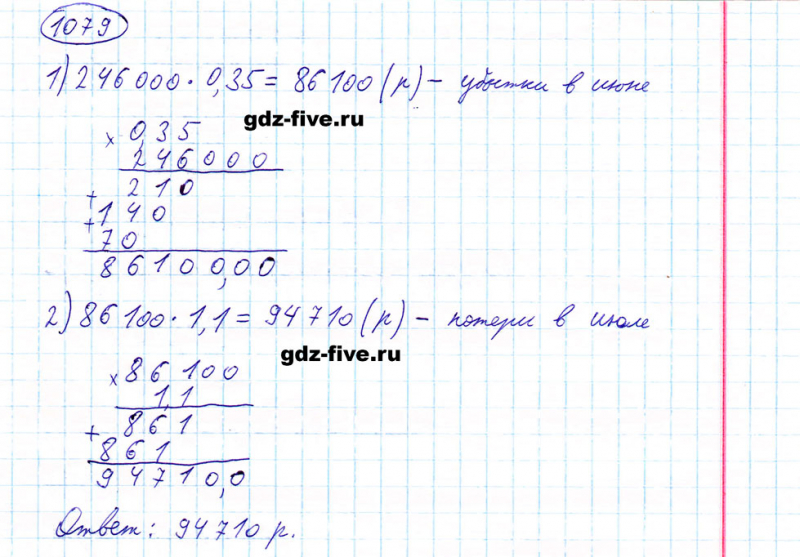 1079
1) 246000 · 0,35 = 86100 (р) – убытки в июне
gdz-five.ru
× 0,35
246000
210
+ 140
+ 70
86100,00
2) 86100 · 1,1 = 94710 (р) – потери в июле
gdz-five.ru
× 86100
1,1
861
+ 861
94710,0
Ответ: 94710 р.